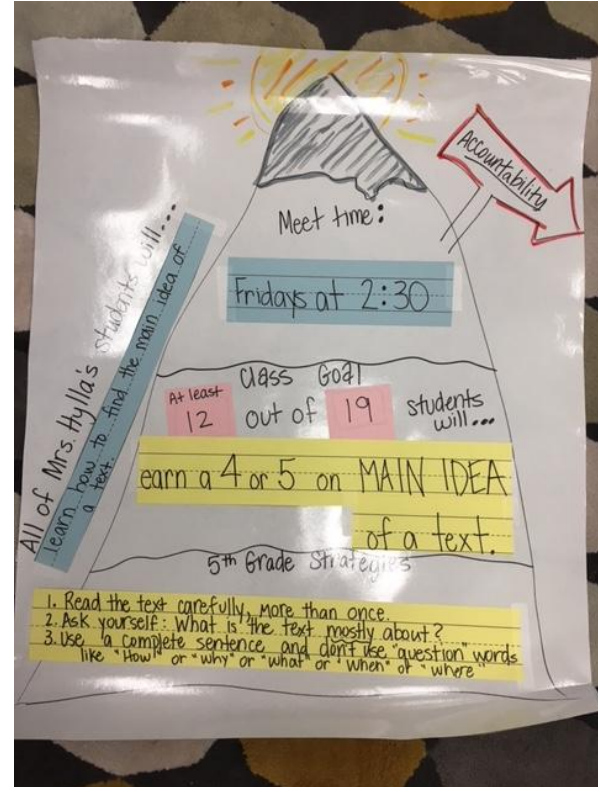 Accountability
Meet time:
Fridays at 2:30
All of Mrs. Hylla's students will...
learn how to find the main idea of
a text.
Class Goal
At least
12 out of 19 students
will...
earn a 4 or 5 on MAIN IDEA
of a text.
5th Grade Strategies
1. Read the text carefully, more than once.
2. Ask yourself: What is the text mostly about?
3. Use a complete sentence and don't use "question" words
like "How" or "why" or "what" or "when" or "where"